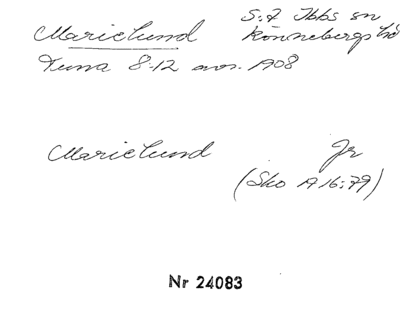 Marielund S:t Ibbs sn
Rönnebergs hd
Tuna 8.12 avs. 1908
Marielund Jr
(Sko A 16:79)
Nr 24083